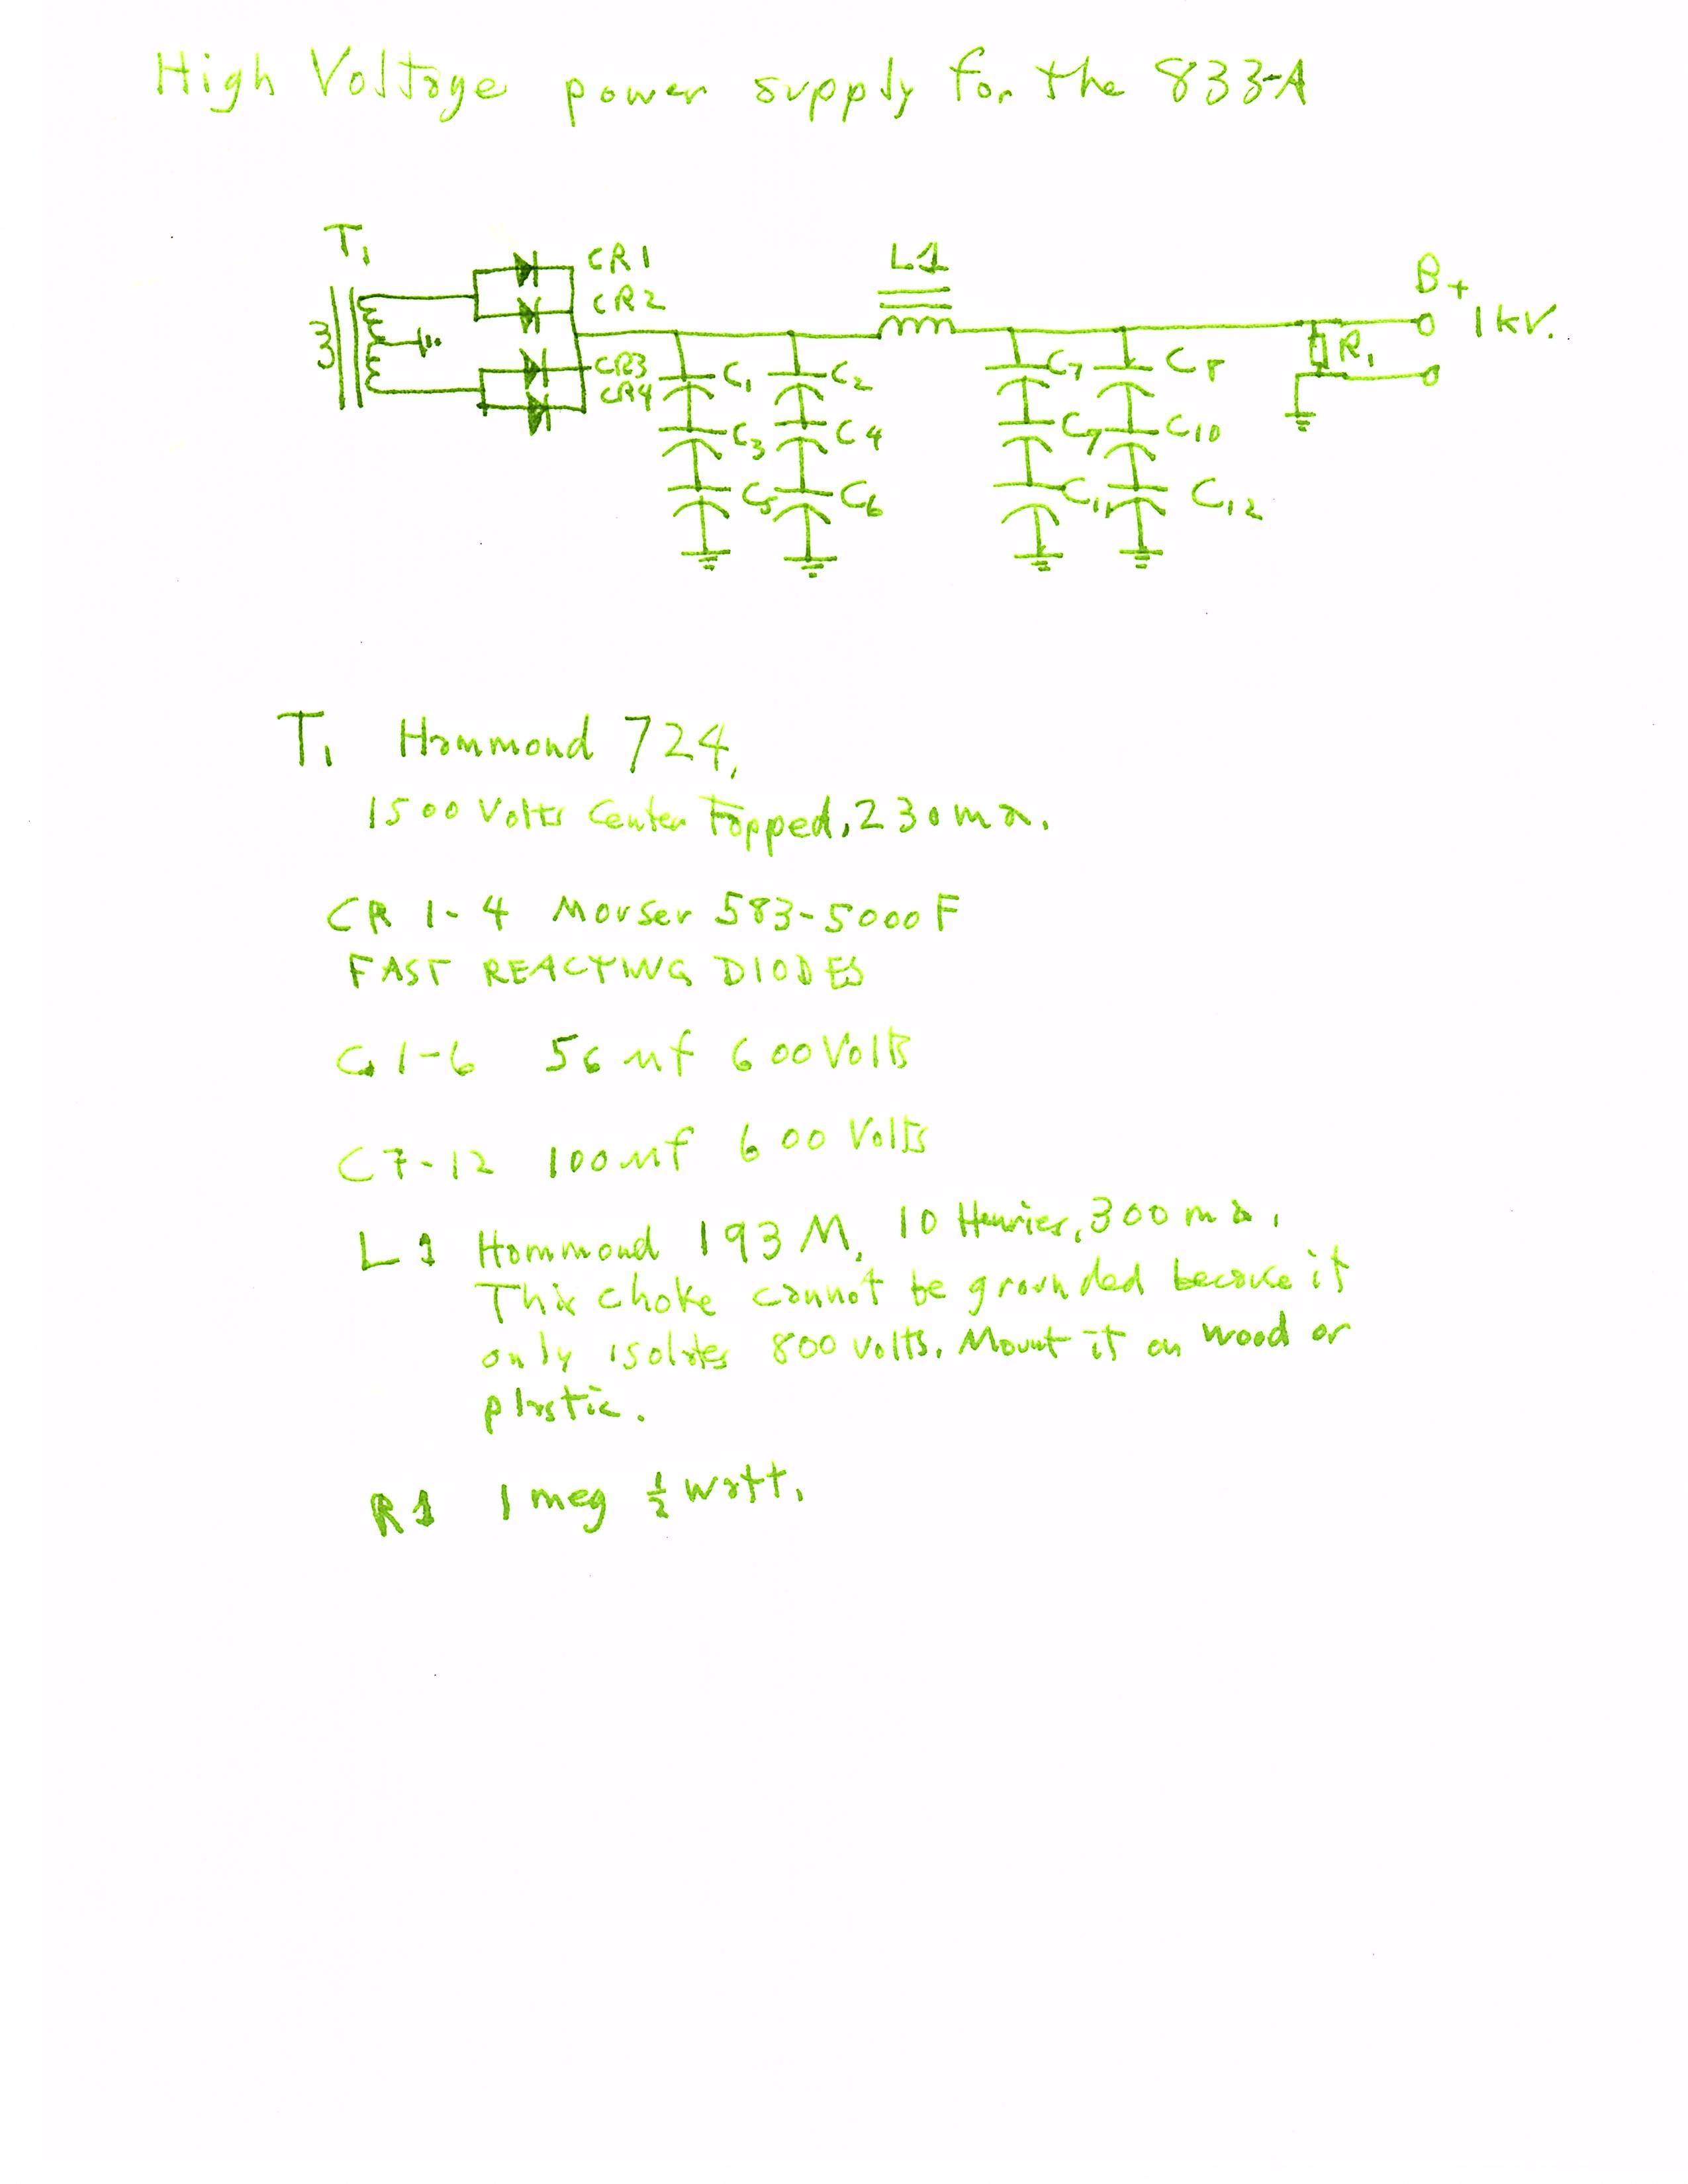 High Voltage power supply for the 833-A
T1
CR1
CR2
CR3
CR4
L1
B+
1kV.
R1
C1
C2
C7
C8
C3
C4
C7
C10
C5
C6
C11
C12
T1 Hammond 724,
1500 Volts Center Tapped, 230 ma.
CR 1-4 Mouser 583-5000F
FAST REACTING DIODES
C1-6 56 uf 600 Volts
C7-12 100 uf 600 Volts
L1 Hammond 193 M, 10 Henries, 300 ma.
This choke cannot be grounded because it
only isolates 800 volts. Mount it on wood or
plastic.
R1 1 meg ½ watt.